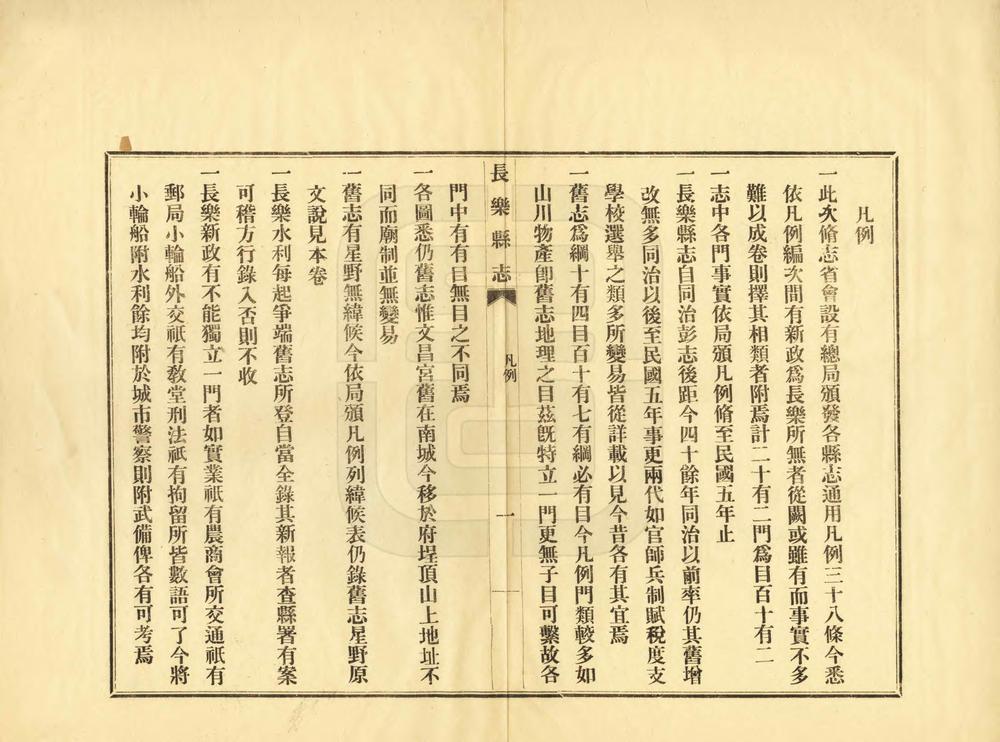 凡例
一此次脩志省會設有總局頒發各縣志通用凡例三十八條今悉
依凡例編次間有新政爲長樂所無者從闕或雖有而事實不多
難以成卷則擇其相類者附焉計二十有二門爲目百十有二
一志中各門事實依局頒凡例脩至民國五年止
一長樂縣志自同治彭志後距今四十餘年同治以前率仍其舊增
改無多同治以後至民國五年事更兩代如官師兵制賦稅度支
學校選舉之類多所變易皆從詳載以見今昔各有其宜焉
一舊志爲綱十有四目百十有七有綱必有目今凡例門類較多如
山川物產卽舊志地理之目茲旣特立一門更無子目可繫故各
長樂縣志
凡例
一
門中有有目無目之不同焉
一各圖悉仍舊志惟文昌宮舊在南城今移於府埕頂山上地址不
同而廟制並無變易
一舊志有星野無緯候今依局頒凡例列緯候表仍錄舊志星野原
文說見本卷
一長樂水利每起爭端舊志所登自當全錄其新報者查縣署有案
可稽方行錄入否則不收
一長樂新政有不能獨立一門者如實業祇有農商會所交通祇有
郵局小輪船外交祇有教堂刑法祇有拘留所皆數語可了今將
小輪船附水利餘均附於城市警察則附武備俾各有可考焉